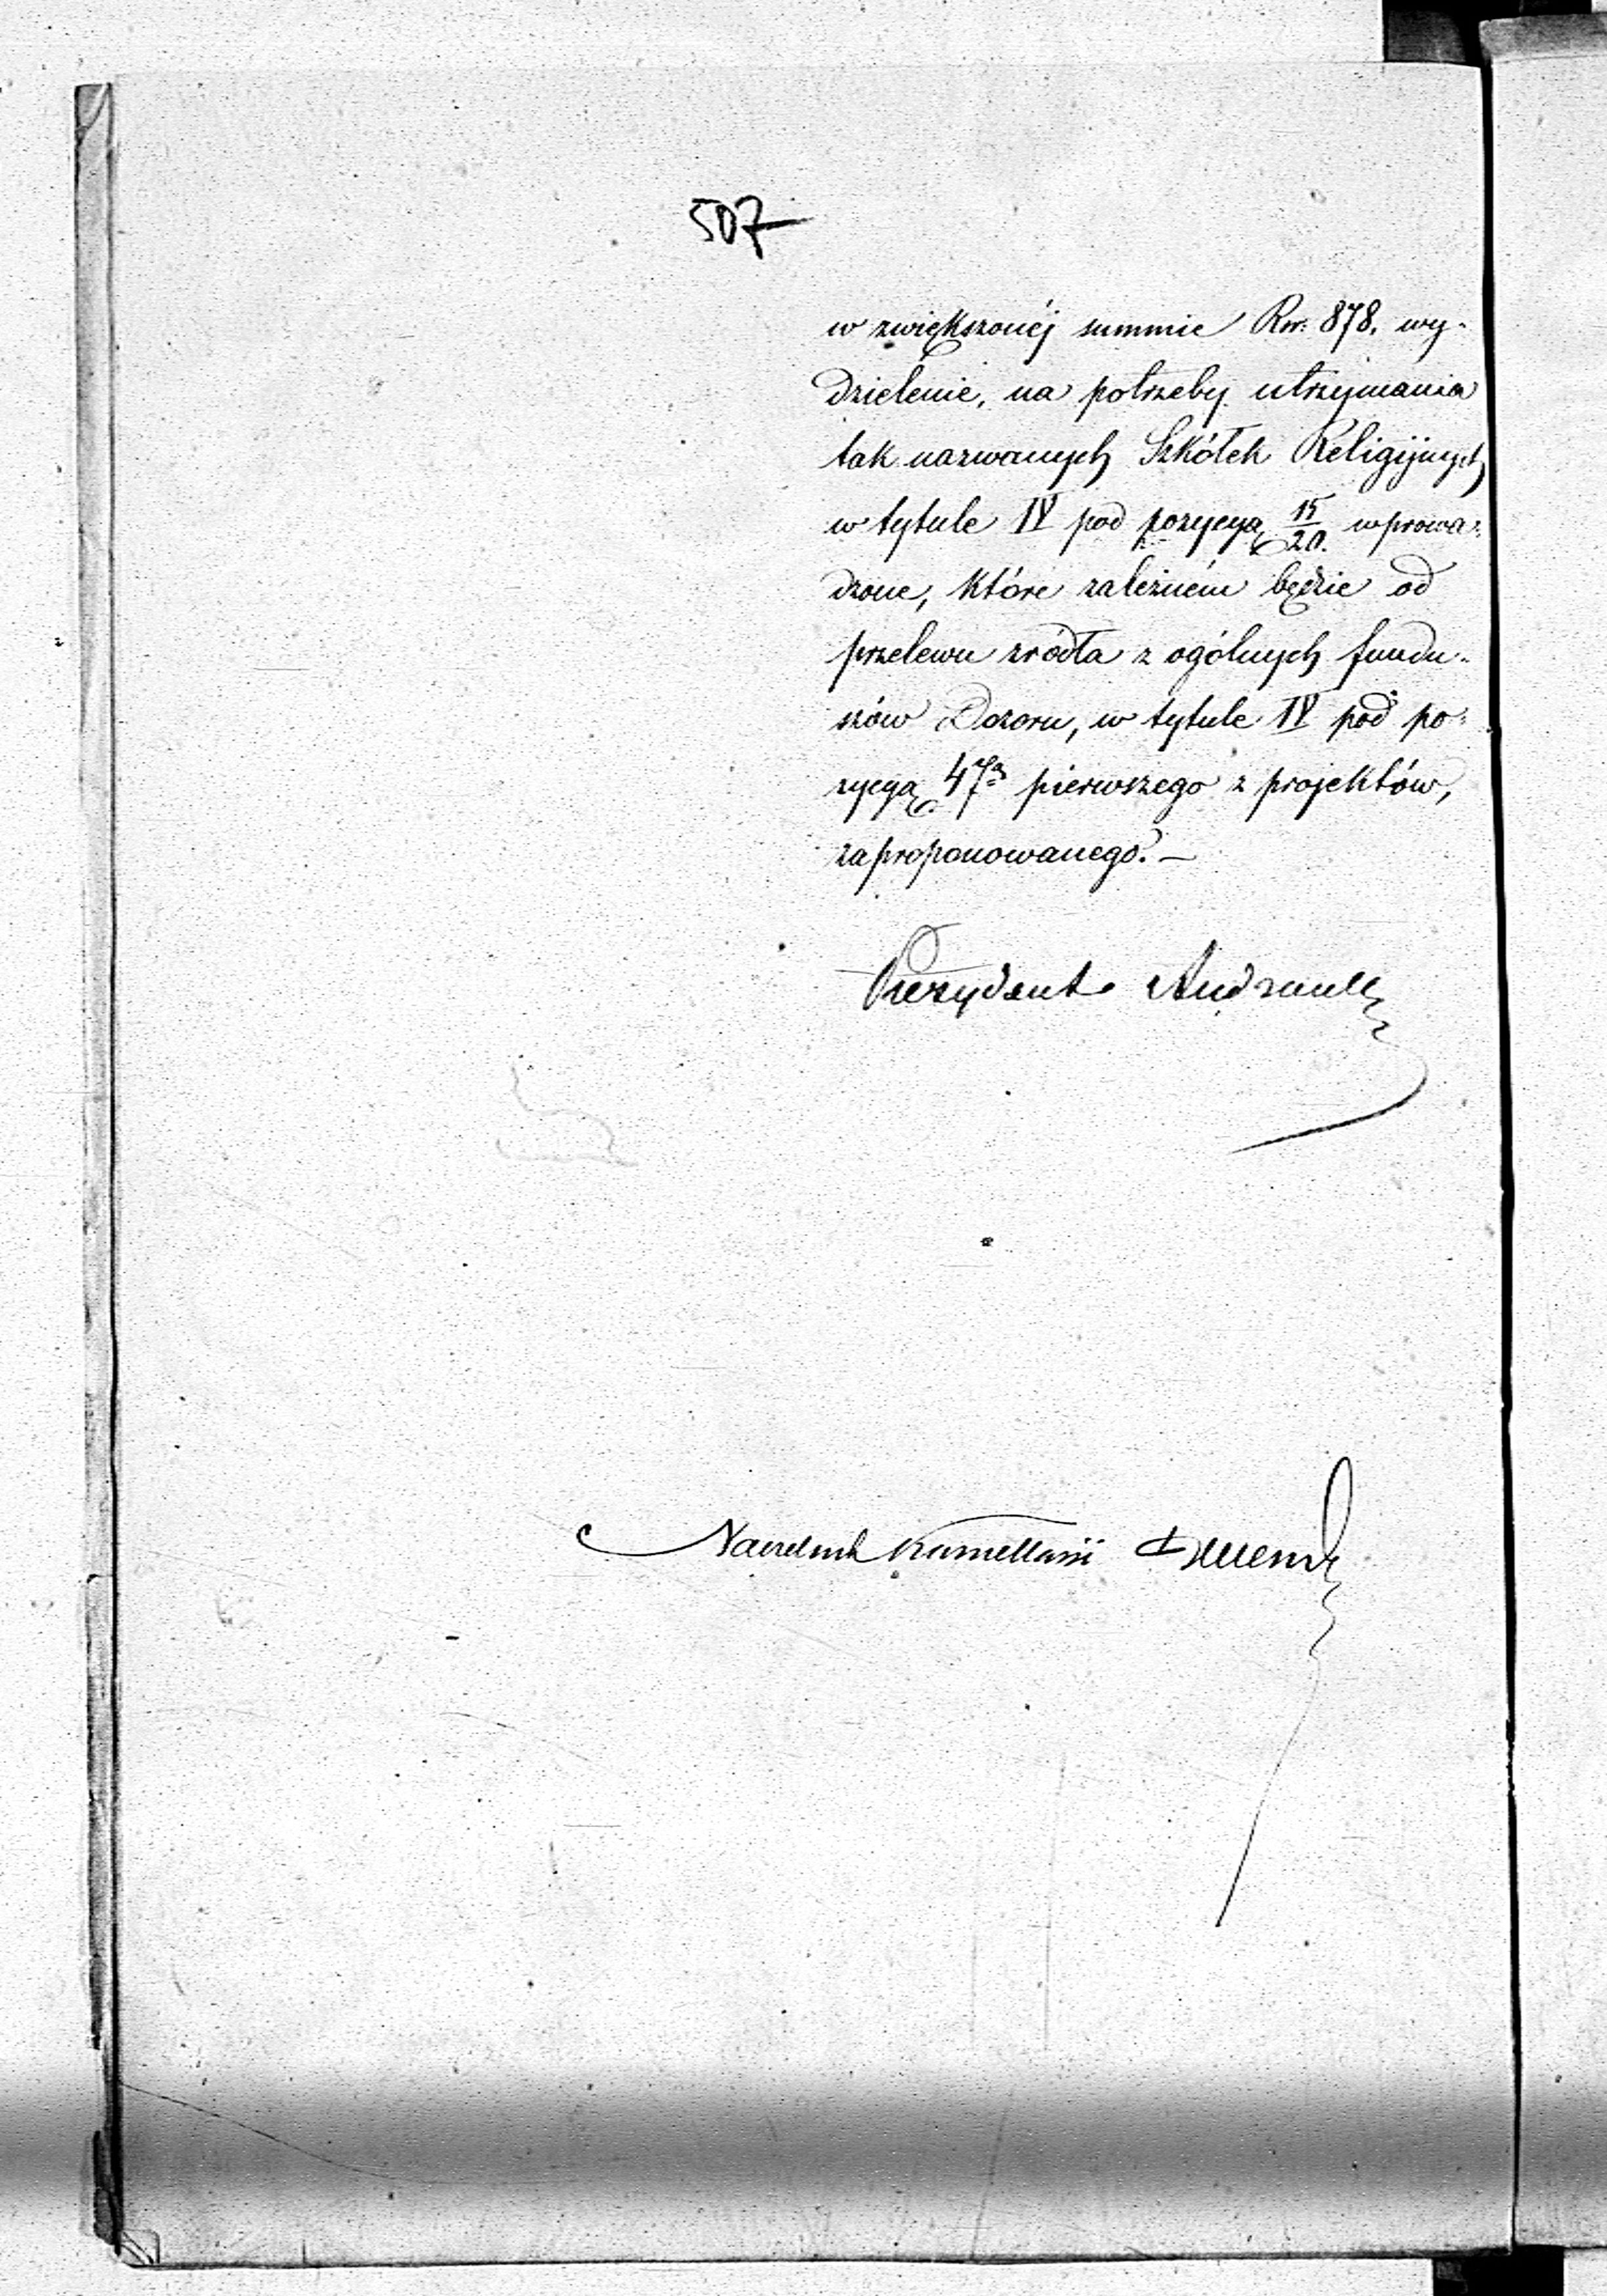 507
w zwiększonéj summie Rsr: 878. wy-
dzielenie, na potrzeby utrzymania
tak nazwanych Szkółek Religijnych
w tytule IV pod pozycyą 15/20. wprowa-
dzone, które zależném będzie od
przelewu zródła z ogólnych fundu-
szów Dozoru, w tytule IV pod po-
zycyą 47ą pierwszego z projektów,
zaproponowanego. —
Prezydent Andrault
Naczelnik Kancellarii